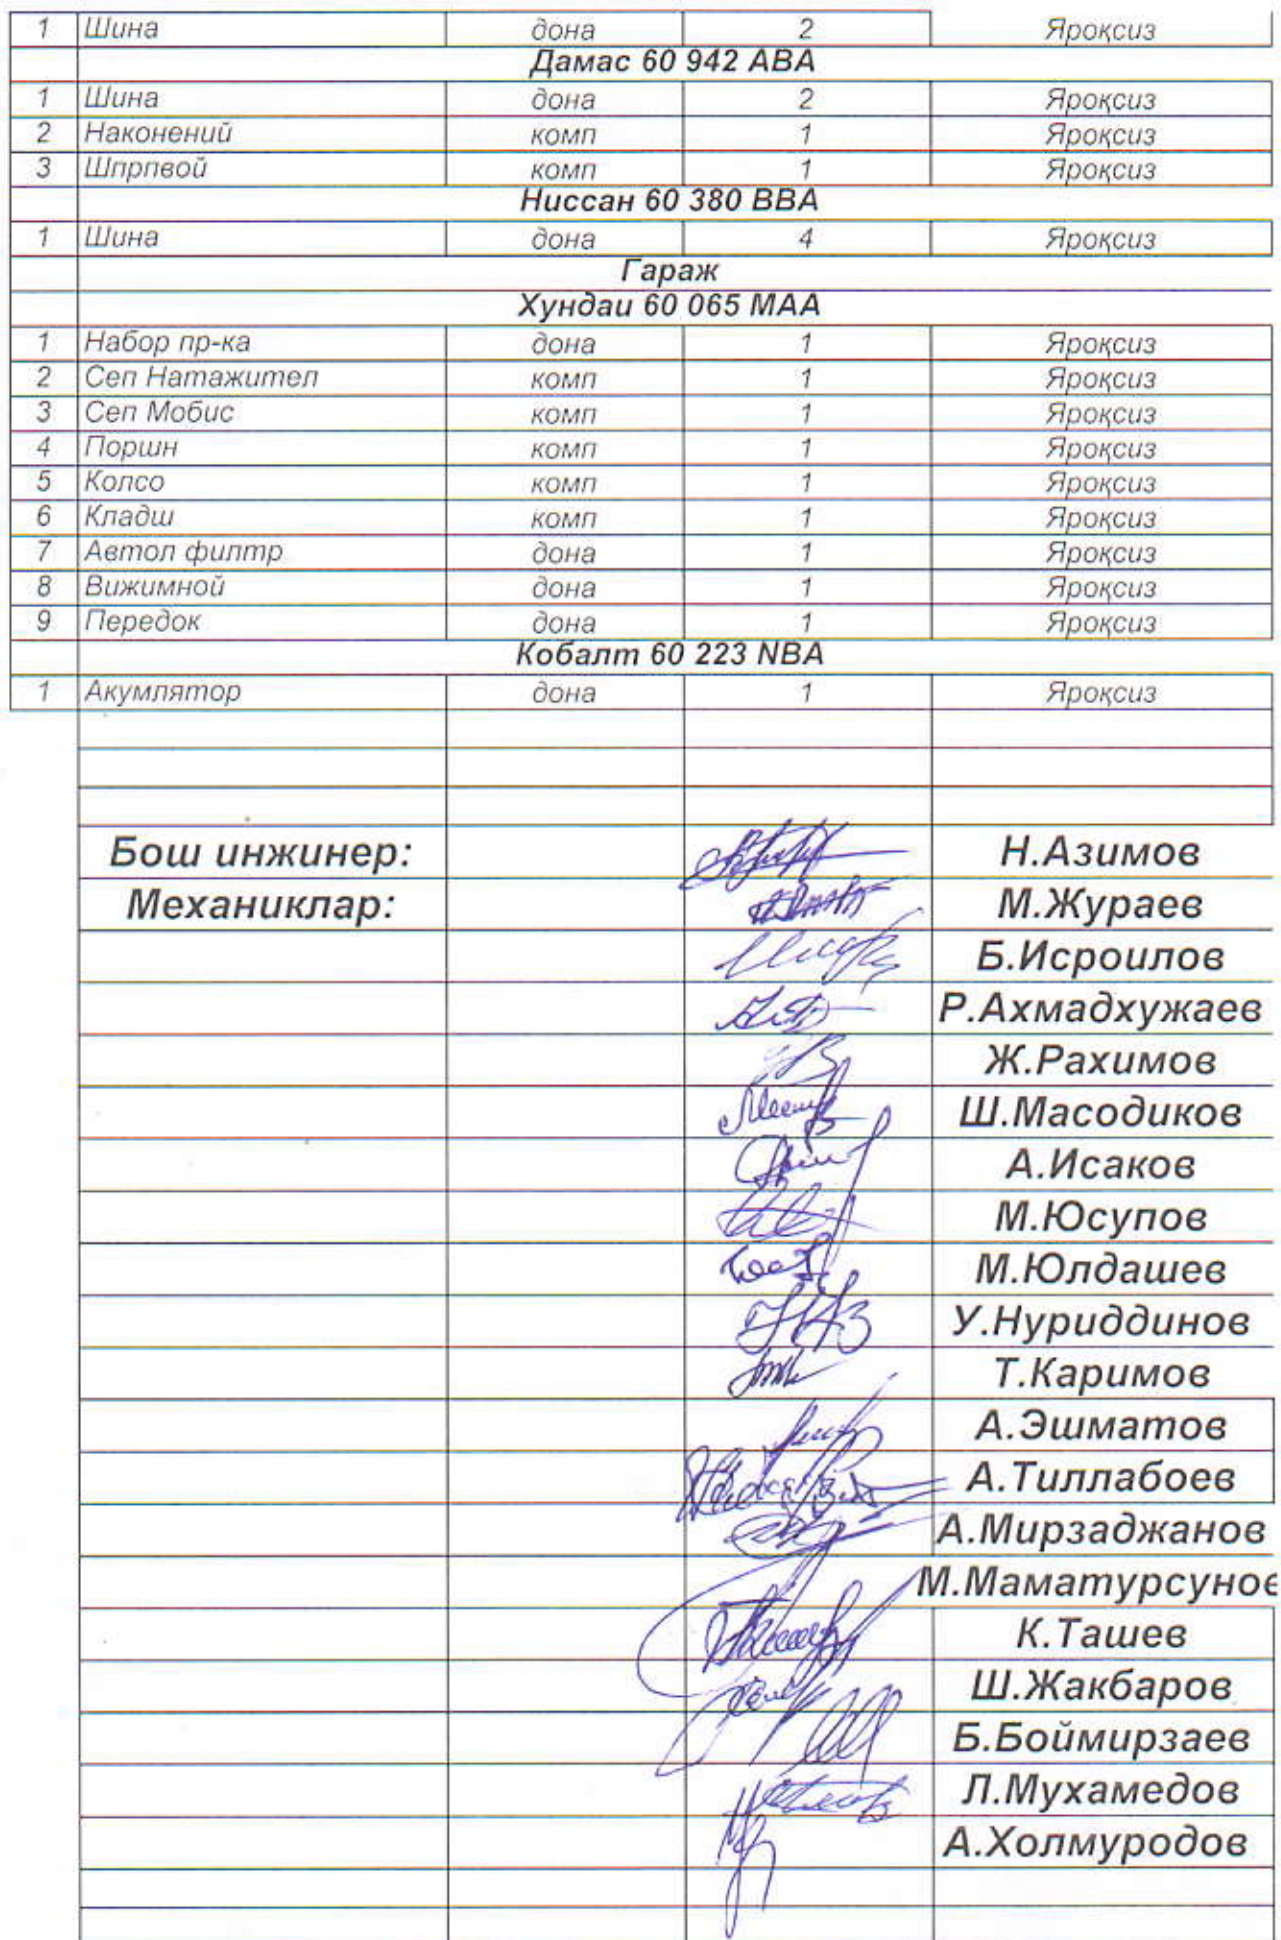 1 Шина дона 2 Яроқсиз
Дамас 60 942 ABA
1 Шина дона 2 Яроқсиз
2 Наконений комп 1 Яроқсиз
3 Шпрпвой комп 1 Яроқсиз
Ниссан 60 380 BBA
1 Шина дона 4 Яроқсиз
Гараж
Хундаи 60 065 MAA
1 Набор пр-ка дона 1 Яроқсиз
2 Сеп Натажител комп 1 Яроқсиз
3 Сеп Мобис комп 1 Яроқсиз
4 Поршн комп 1 Яроқсиз
5 Колсо комп 1 Яроқсиз
6 Кладш комп 1 Яроқсиз
7 Автол филтр дона 1 Яроқсиз
8 Вижимной дона 1 Яроқсиз
9 Передок дона 1 Яроқсиз
Кобалт 60 223 NBA
1 Акумлятор дона 1 Яроқсиз
Бош инжинер: Н.Азимов
Механиклар: М.Жураев
Б.Исроилов
Р.Ахмадхужаев
Ж.Рахимов
Ш.Масодиков
А.Исаков
М.Юсупов
М.Юлдашев
У.Нуриддинов
Т.Каримов
А.Эшматов
А.Тиллабоев
А.Мирзаджанов
М.Маматурсунов
К.Ташев
Ш.Жакбаров
Б.Боймирзаев
Л.Мухамедов
А.Холмуродов